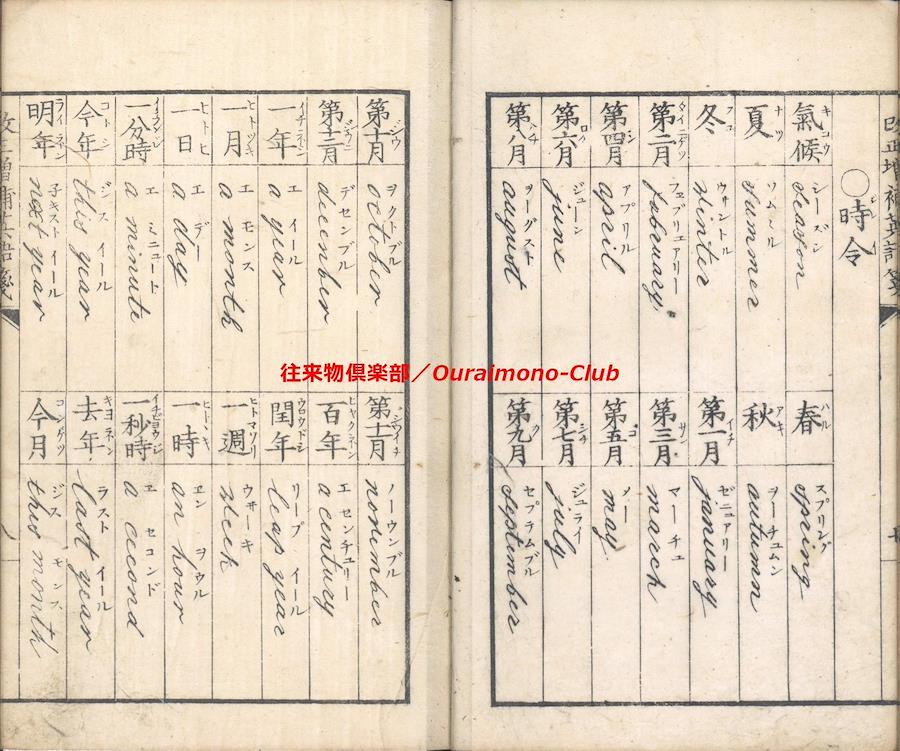 改正増補英語箋
○時令
氣候 キコウ
シーズン
season
春 ハル
スプリング
spring
夏 ナツ
ソムミル
summer
秋 アキ
ヲーチュムン
autumn
冬 フユ
ウヰントル
winter
第一月 イチ
ゼニュアリー
january
第二月
フェブリュアリー
第三月 サン
マーチュ
march
第四月 シ
アプリル
april
第五月 ゴ
メー
may
第六月 ロク
ジューン
june
第七月 シチ
ジュライ
july
第八月 ハチ
ヲーグスト
august
第九月 ク
セプテムブル
september
第十月 ジウ
ヲクトブル
october
第十一月 ジウイチ
ノーウンブル
第十二月
デセンブル
一年 イチネン
エ イール
a year
百年 ヒャクネン
エ センチュリー
a century
一月 ヒトツキ
エ モンス
a month
閏年 ウロウドシ
リープ イール
leap year
一日 ヒトヒ
エ デー
a day
一週 ヒトマハリ
ウヰーキ
week
一分時
エ ミニュート
a minute
一時 ヒトトキ
エン ヲウル
an hour
今年 コトシ
ジス イール
this year
一秒時 イチビヨウジ
エ セコンド
a cecond
明年 ライネン
子キスト イール
next year
去年 キヨネン
ラスト イール
last year
今月 コンゲツ
ジス モンス
this month
改正増補英語箋
八
往来物倶楽部／Ouraimono-Club